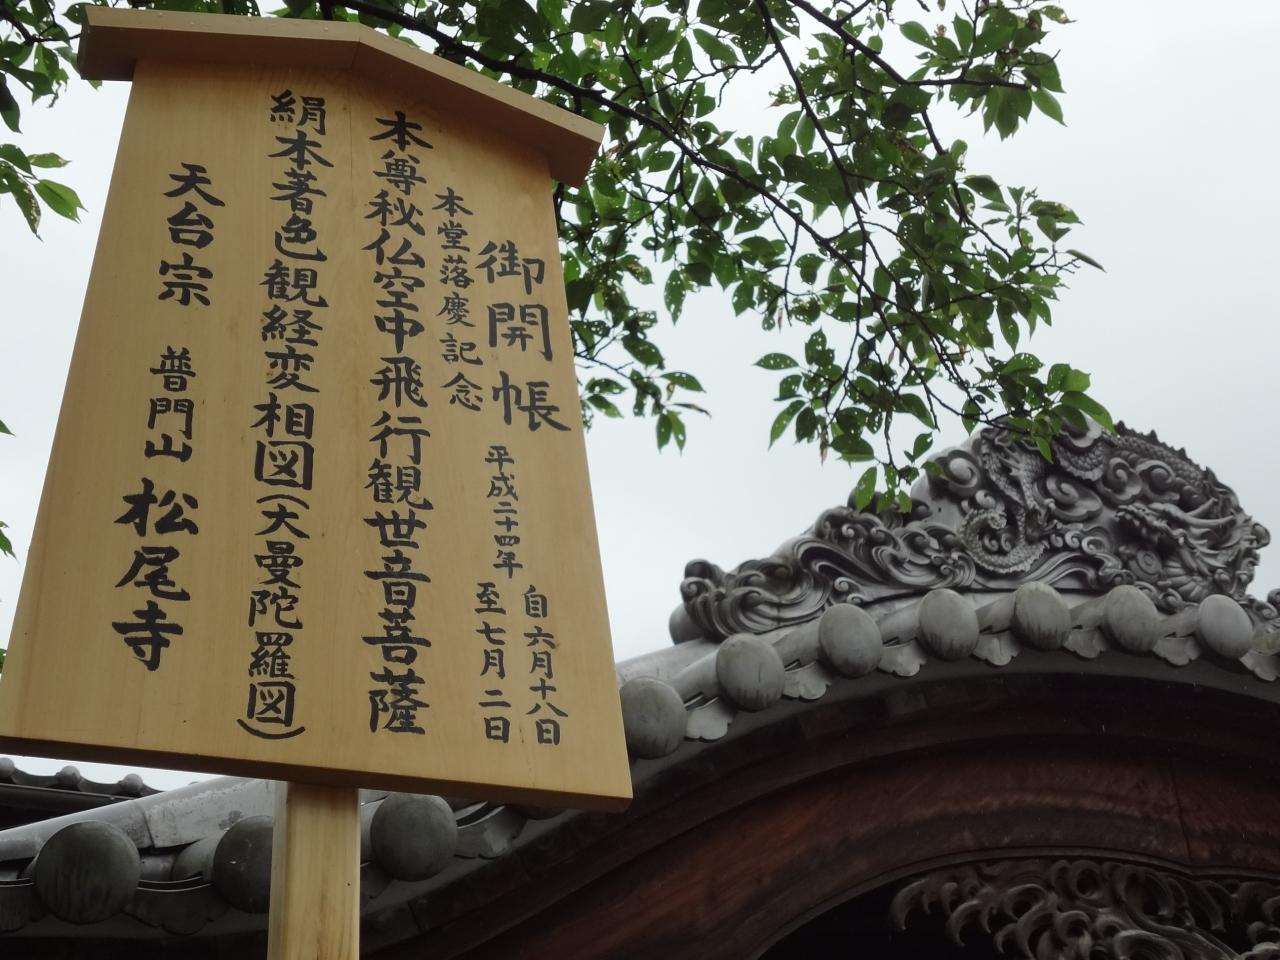 御開帳
平成二十四年
自六月十八日
至七月二日
本堂落慶記念
本尊秘仏空中飛行観世音菩薩
絹本著色観経変相図(大曼陀羅図)
天台宗 普門山 松尾寺